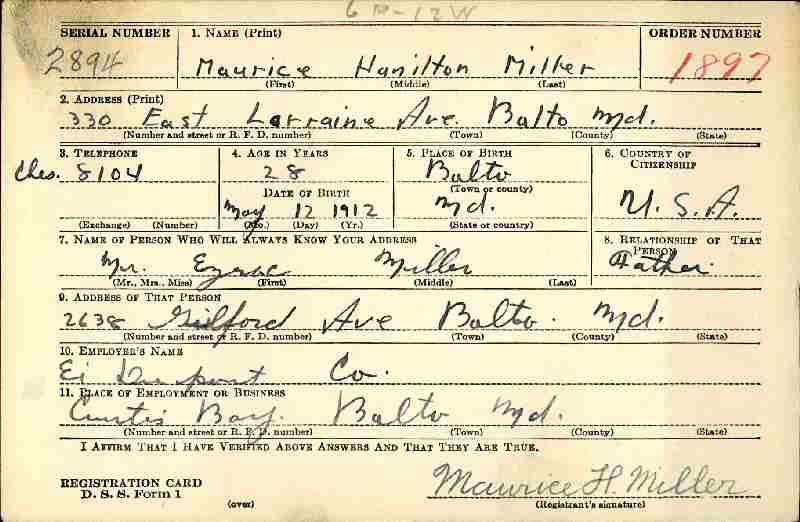 6 D-12W
SERIAL NUMBER 1. NAME (Print) ORDER NUMBER
2894 Maurice Hamilton Miller 1897
(First) (Middle) (Last)
2. ADDRESS (Print)
330 East Lorraine Ave. Balto Md.
(Number and street or R. F. D. number) (Town) (County) (State)
3. TELEPHONE 4. AGE IN YEARS 5. PLACE OF BIRTH 6. COUNTRY OF CITIZENSHIP
Ches. 8104 28 Balto
DATE OF BIRTH (Town or county)
May 12 1912 Md. U. S. A.
(Exchange) (Number) (Mo.) (Day) (Yr.) (State or country)
7. NAME OF PERSON WHO WILL ALWAYS KNOW YOUR ADDRESS 8. RELATIONSHIP OF THAT PERSON
Mr. Miller Father
(Mr., Mrs., Miss) (First) (Middle) (Last)
9. ADDRESS OF THAT PERSON
2638 Guilford Ave Balto. Md.
(Number and street or R. F. D. number) (Town) (County) (State)
10. EMPLOYER'S NAME
Ei Dupont Co.
11. PLACE OF EMPLOYMENT OR BUSINESS
Curtis Bay. Balto Md.
(Number and street or R. F. D. number) (Town) (County) (State)
I AFFIRM THAT I HAVE VERIFIED ABOVE ANSWERS AND THAT THEY ARE TRUE.
REGISTRATION CARD Maurice H. Miller
D. S. S. Form 1 (over) (Registrant's signature)